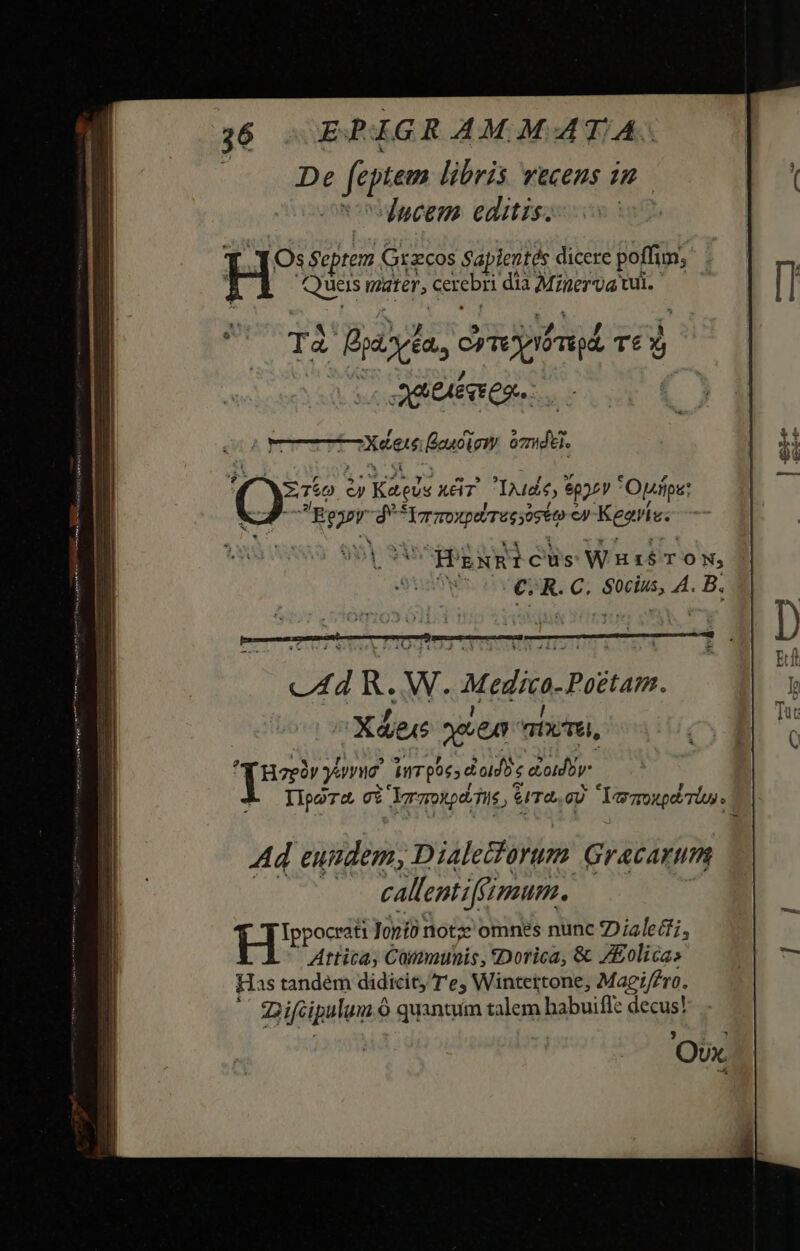 36 EPIGRAMMATA.
De ſeptem libris recens in
lucem editis.
HOs Septem Græcos Sapientés dicere poſſim,
Queis mater, cerebri dia Minerva tui.
Τὰ βραχέα, ἐντεχνότερά τε καὶ
χαριέστερα.
Χάρις βαιοῖσιν ὀπηδεῖ.
ὉΣτέῳ ἐν Καρὺς κεῖτ' Ἰλιὰς, ἔργον Ὁμήρου:
Ἔργον δ' Ἱπποκράτους ὀστέῳ ἐν Κρανίου.
HENRICUS WHISTON,
C. R. C. Socius, A. B.
Ad R. W. Medico-Poëtam.
Χάρις χάριν τίκτει,
Ἰητρὸν γέννησ' ἰητρὸς, ἀοιδὸς ἀοιδόν·
Πρῶτα σὲ Ἱπποκράτης, εἶτα σὺ Ἱπποκράτην.
Ad eundem, Dialectorum Græcarum
callentiſſimum.
HIppocrati Ionio notæ omnes nunc Dialecti,
Attica, Communis, Dorica, & Æolica,
Has tandem didicit, Te, Wintertone, Magiſtro.
Diſcipulum ô quantum talem habuiſſe decus!
Οὐκ